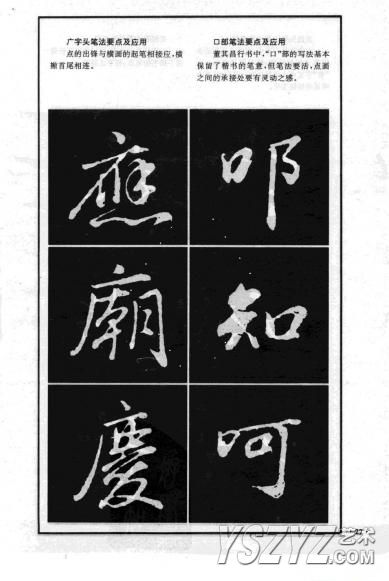 广字头笔法要点及应用
点的出锋与横画的起笔相接应，横
撇首尾相连。
口部笔法要点及应用
董其昌行书中，“口”部的写法基本
保留了楷书的笔意，但笔法要活，点画
之间的承接处要有灵动之感。
應
廟
慶
叩
知
呵
27
YSZYZ艺术
.COM